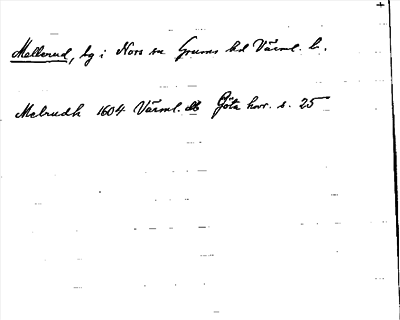 Mellerud, by i Nors sn Grums hd Värml. l.
Melrudh 1604 Värml. Göta hovr. s. 25